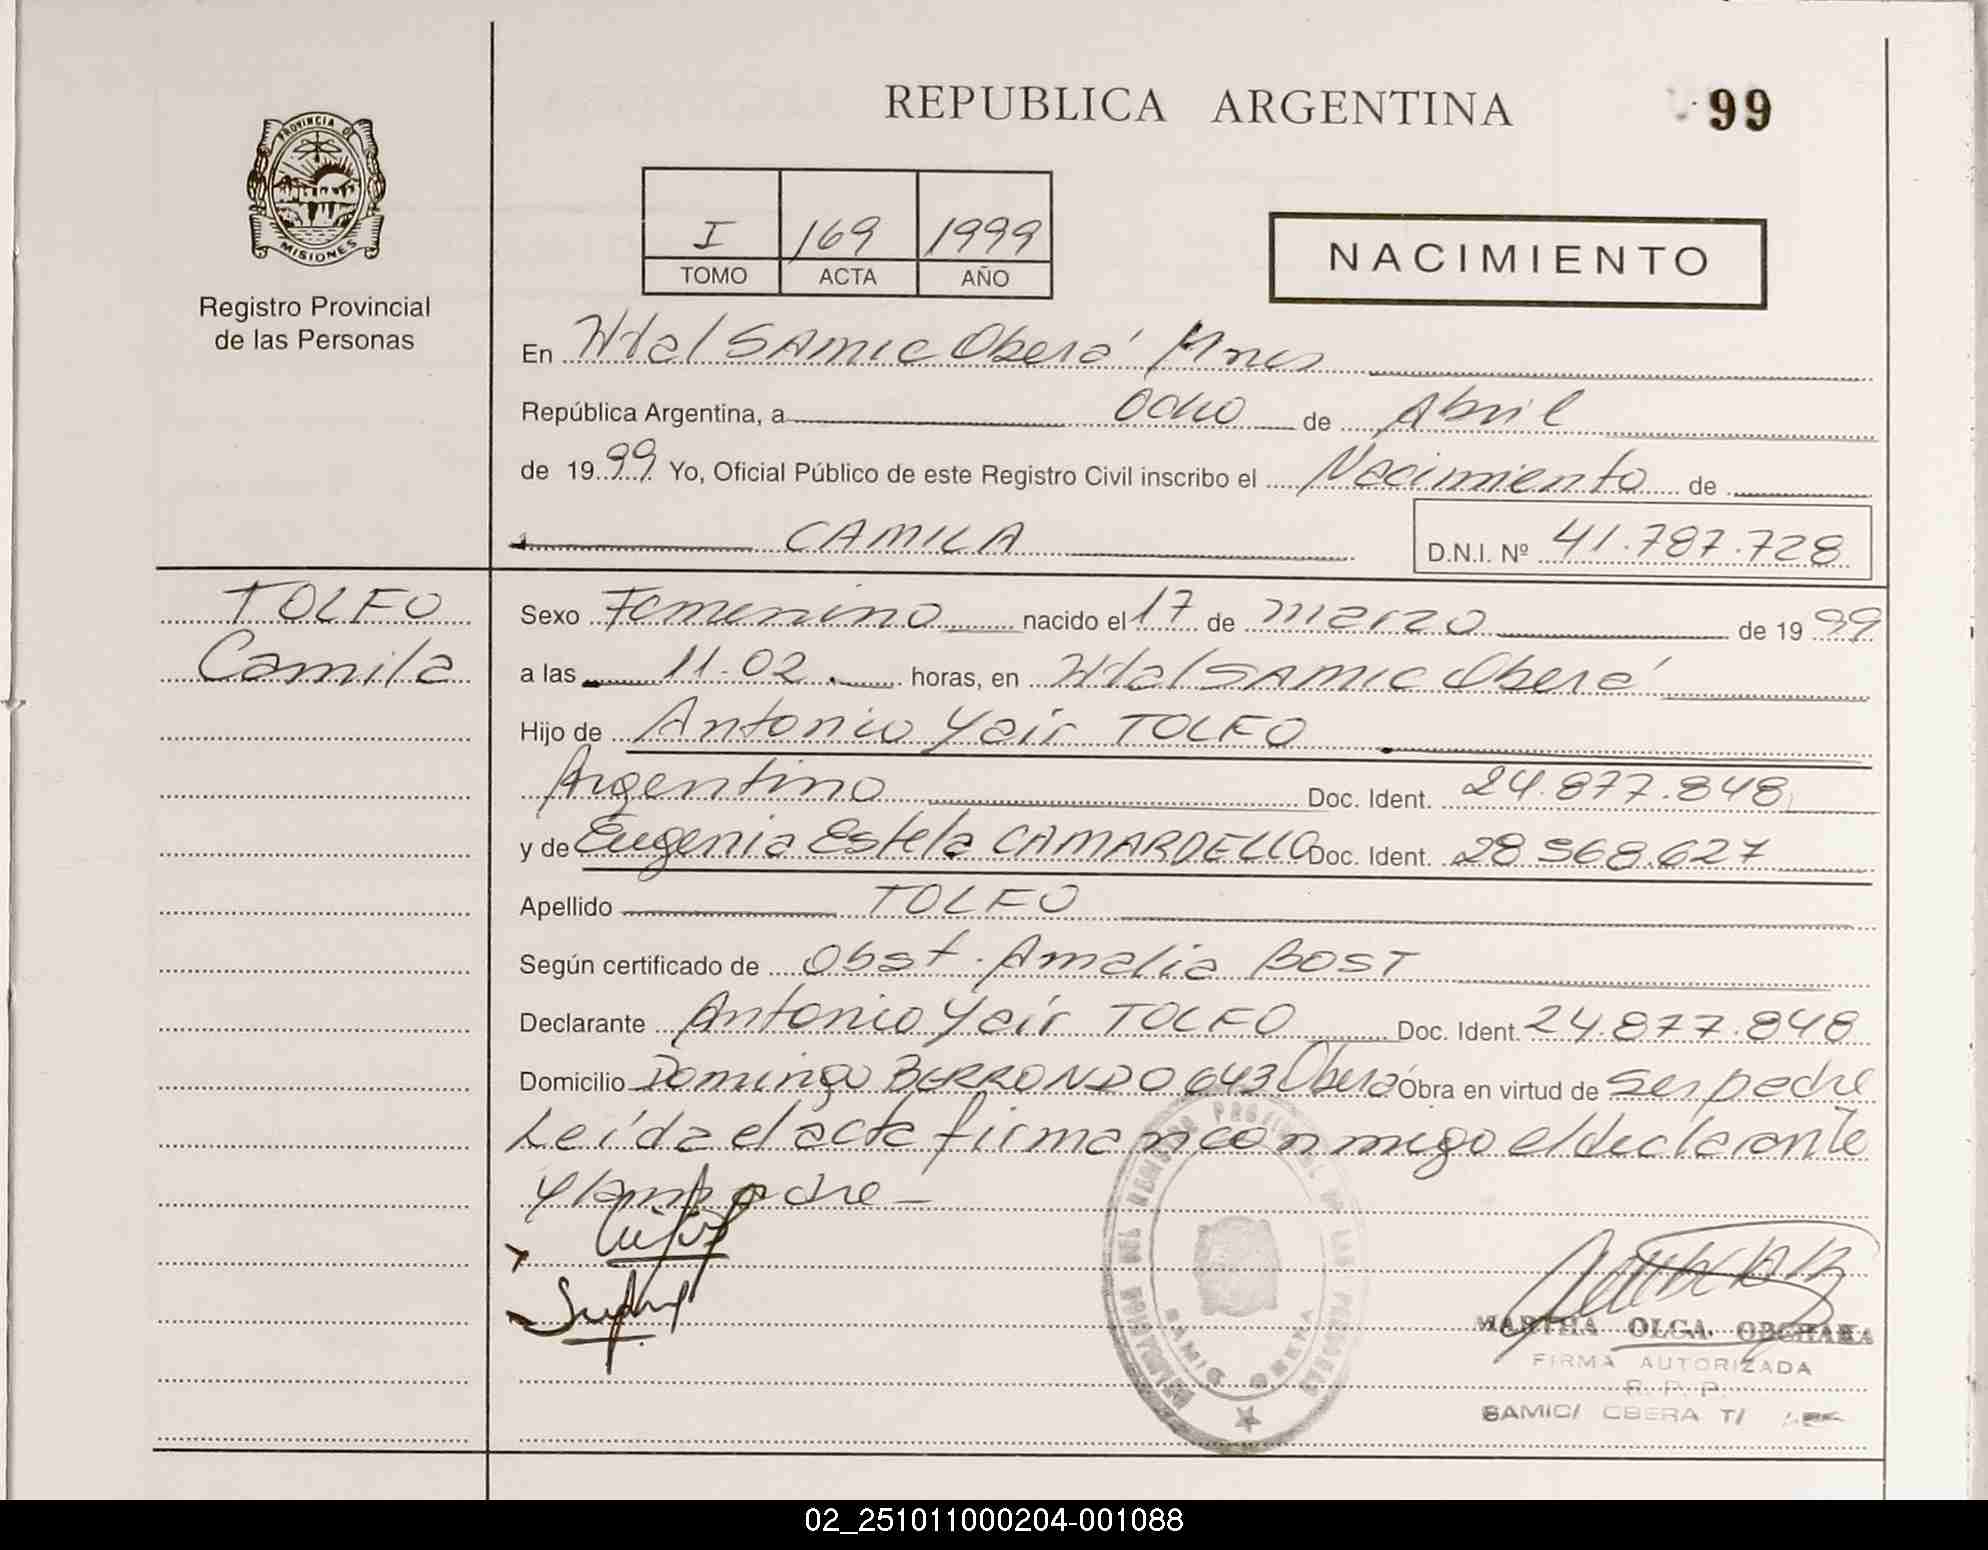 REPUBLICA ARGENTINA
99
PROVINCIA DE
MISIONES
Registro Provincial
de las Personas
I 169 1999
TOMO ACTA AÑO
NACIMIENTO
En Htal SAMIC Oberá Mnes
República Argentina, a Ocho de Abril
de 1999 Yo, Oficial Público de este Registro Civil inscribo el Nacimiento de
CAMILA D.N.I. Nº 41.787.728
TOLFO
Camila
Sexo Femenino nacido el 17 de marzo de 1999
a las 11.02. horas, en Htal SAMIC Oberá
Hijo de Antonio Yair TOLFO
Argentino Doc. Ident. 24.877.848
y de Eugenia Estela CAMARDELLO Doc. Ident. 28 568.627
Apellido TOLFO
Según certificado de Obst. Amalia BOST
Declarante Antonio Yair TOLFO Doc. Ident. 24.877.848
Domicilio Domingo BERRONDO 643 Oberá Obra en virtud de ser padre
Leída el acta firman conmigo el declarante
y la madre –
DEL REGISTRO PROVINCIAL DE LAS PERSONAS
SAMIC OBERA
MARTHA OLGA
FIRMA AUTORIZADA
R. P. P.
SAMIC/ OBERA T/
02_251011000204-001088